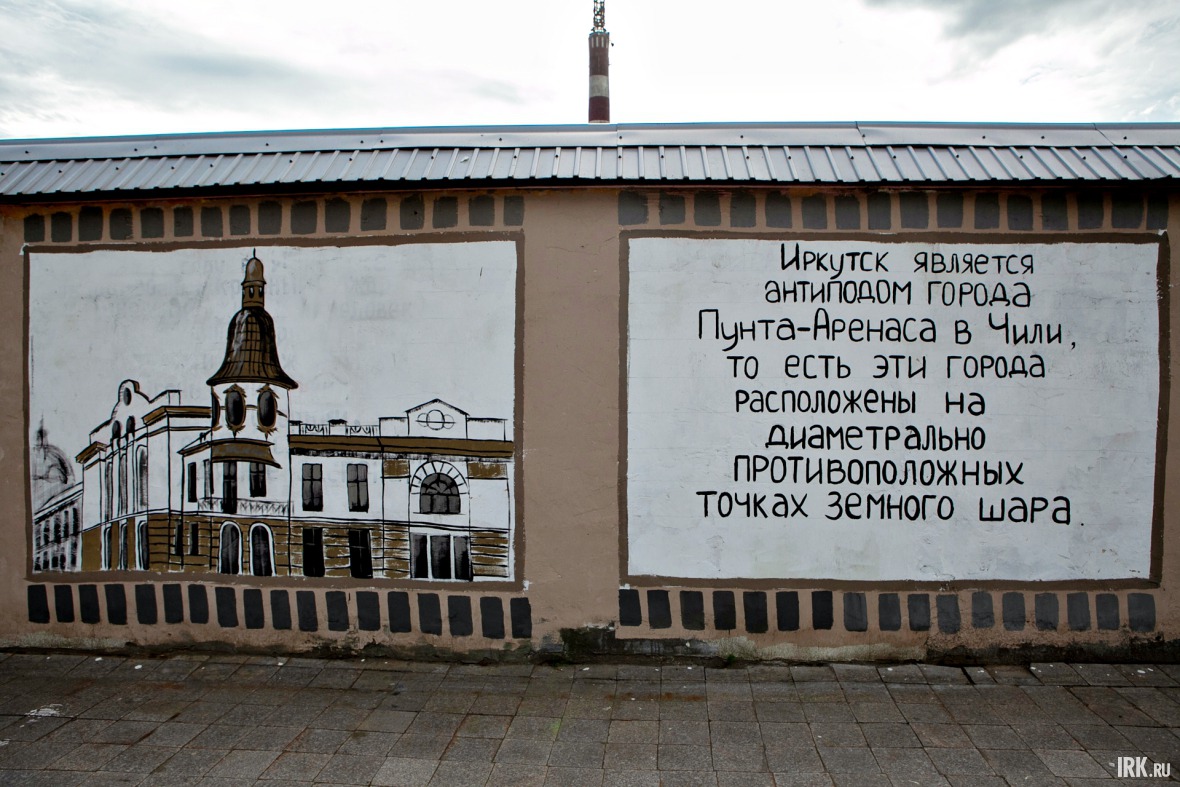 Иркутск является
антиподом города
Пунта-Аренаса в Чили,
то есть эти города
расположены на
диаметрально
противоположных
точках земного шара.
IRK.RU